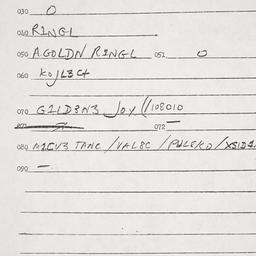 030 0
040 RINGL
050 AGOLDN RINGL 051 0
060 KOJL3C4
070 G1LD3N3 JOY (/108010
071 072 —
080 M1CV3 TANC / VAL8C / PWLERD / XSID4
090 —